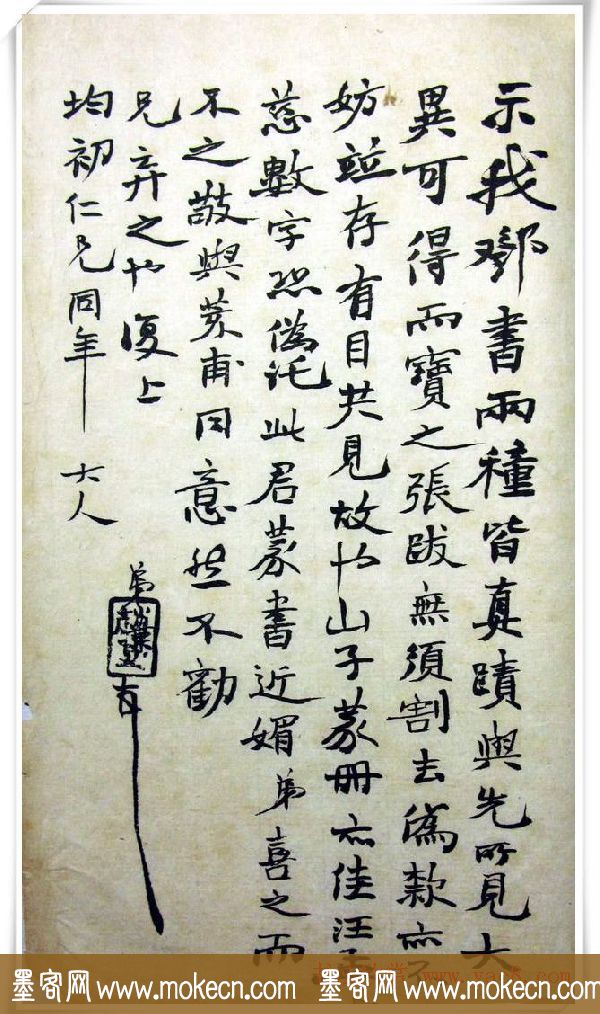 示我鄧書兩種皆真蹟與先所見大
異可得而寶之張跋無須割去偽款亦
妨並存有目共見故也山子篆冊亦佳汪
慈數字恐偽託此君篆書近媚弟喜之而
不之敬與荄甫同意然不勸
兄弃之也復上
均初仁兄同年大人
弟
墨客网 www.mokecn.com 墨客网 www.mokecn.com